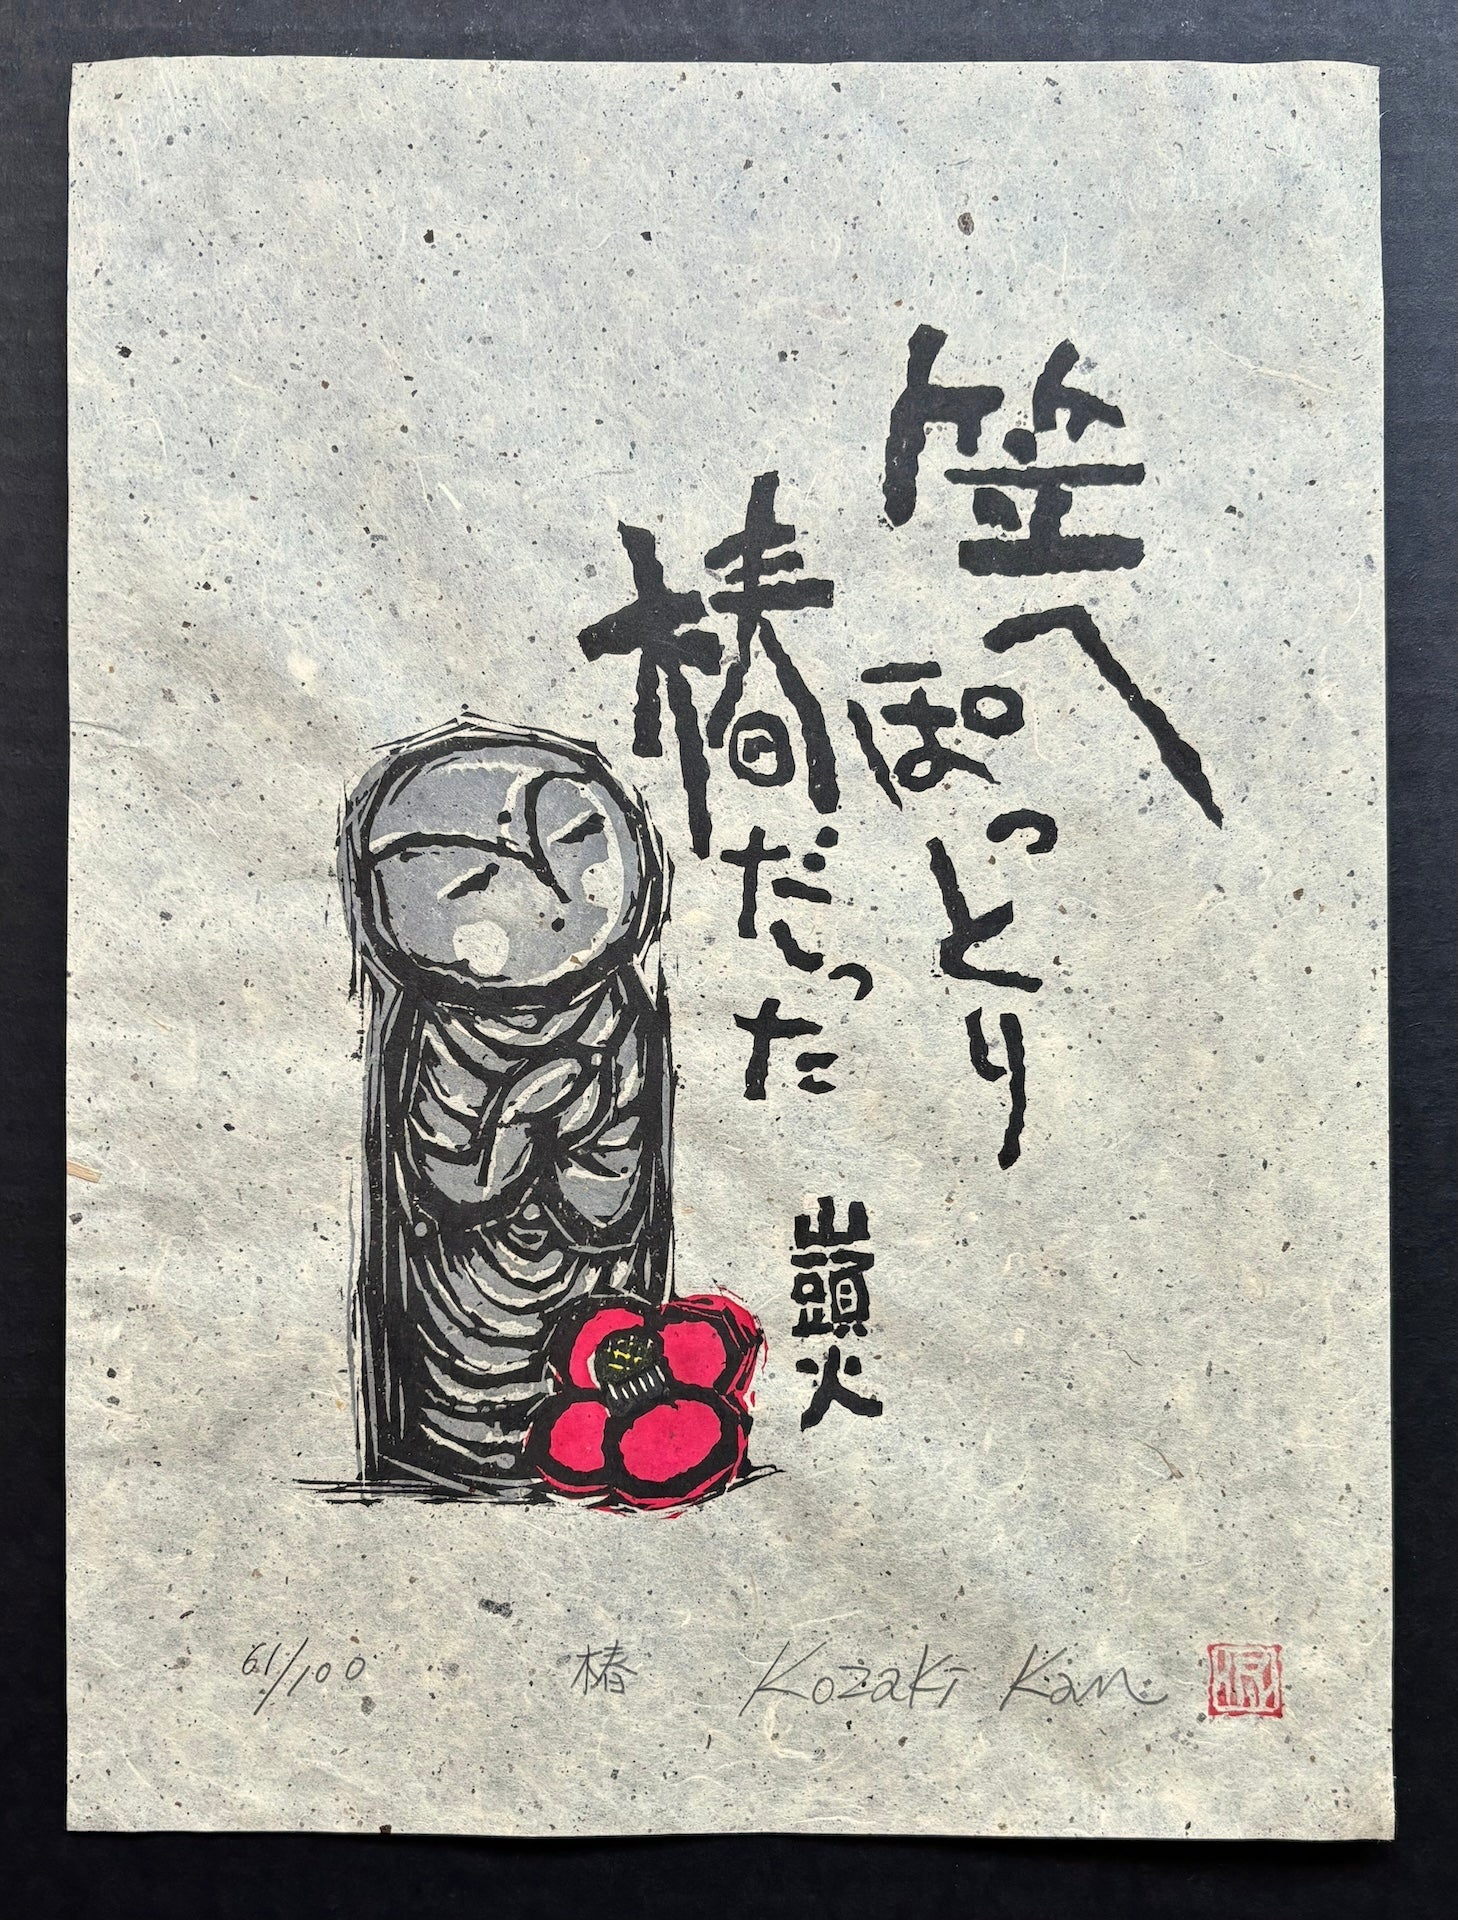 笠へ
ぽっとり
椿だった
山頭火
61/100 椿 Kozaki Kan